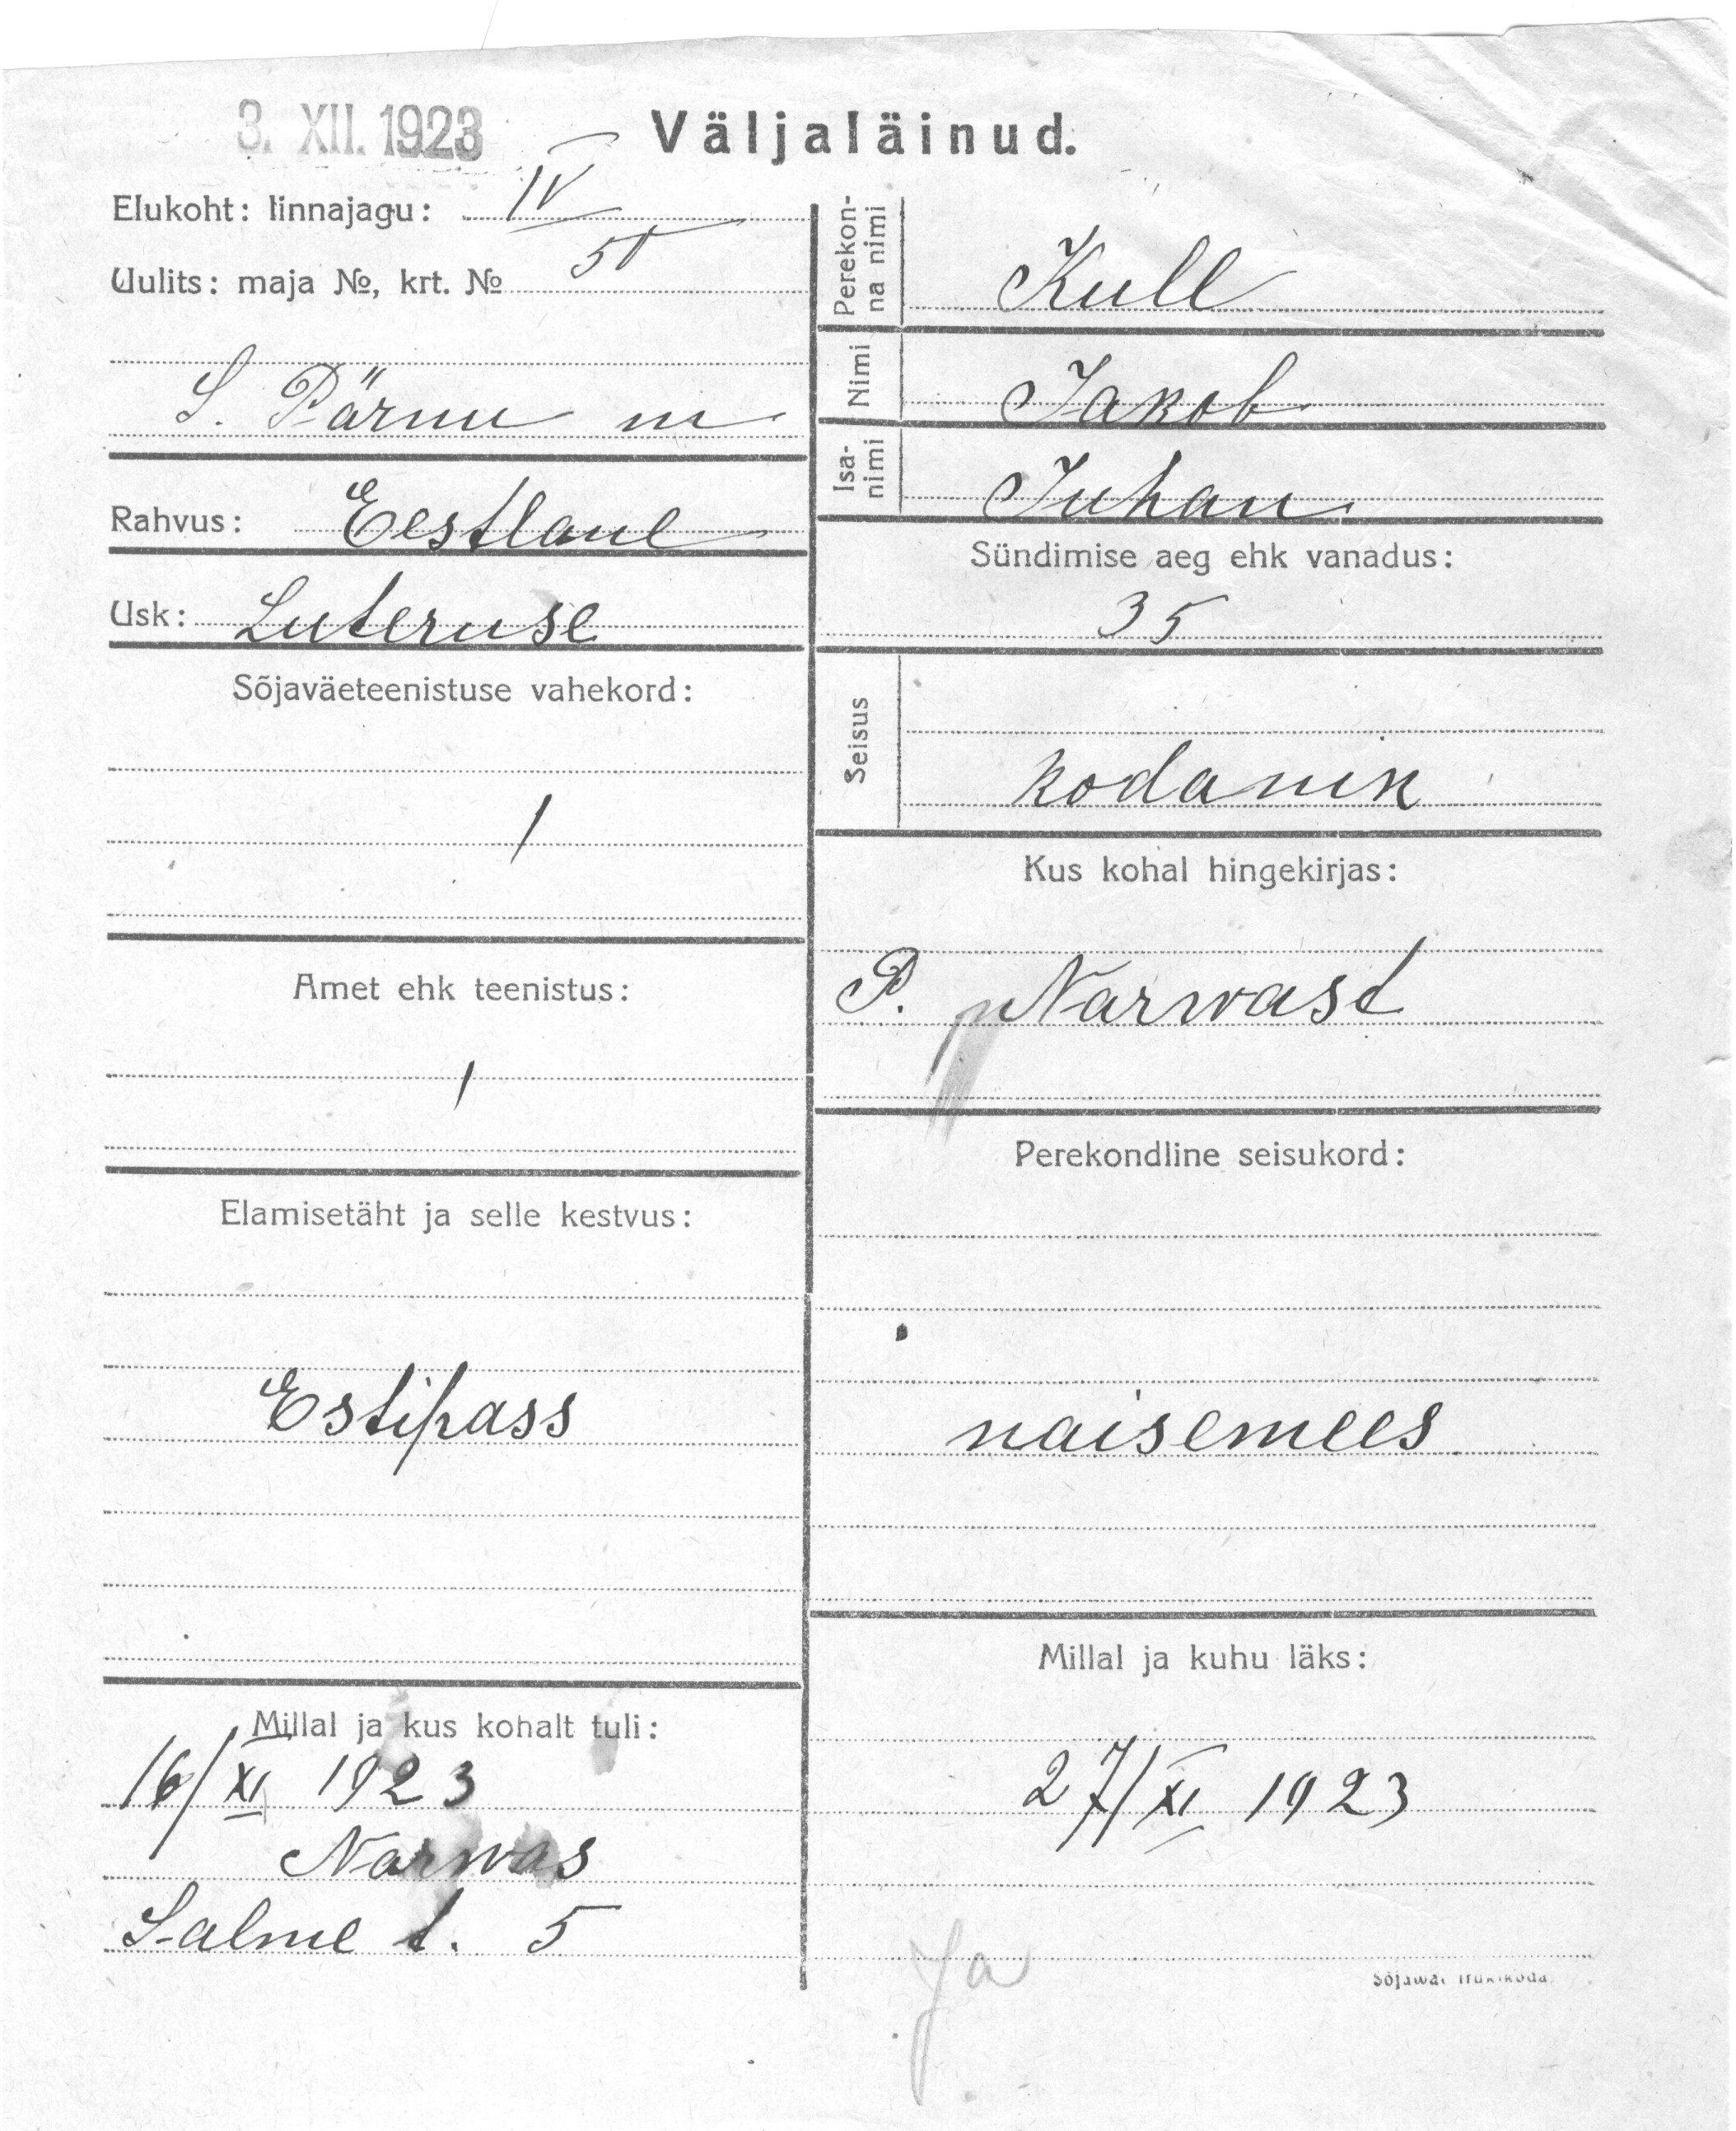 3. XII. 1923
Väljaläinud.
Elukoht: linnajagu: IV
Uulits: maja №, krt. № 50
S. Pärnu m
Rahvus: Eestlane
Usk: Luteruse
Sõjaväeteenistuse vahekord:
/
Amet ehk teenistus:
/
Elamisetäht ja selle kestvus:
Estipass
Millal ja kus kohalt tuli:
16/XI 1923
Narwas
Salme t. 5
Perekon-
na nimi
Kull
Nimi
Jakob
Isa-
nimi
Juhan
Sündimise aeg ehk vanadus:
35
Seisus
kodanik
Kus kohal hingekirjas:
P. Narwast
Perekondline seisukord:
naisemees
Millal ja kuhu läks:
27/XI 1923
Ja